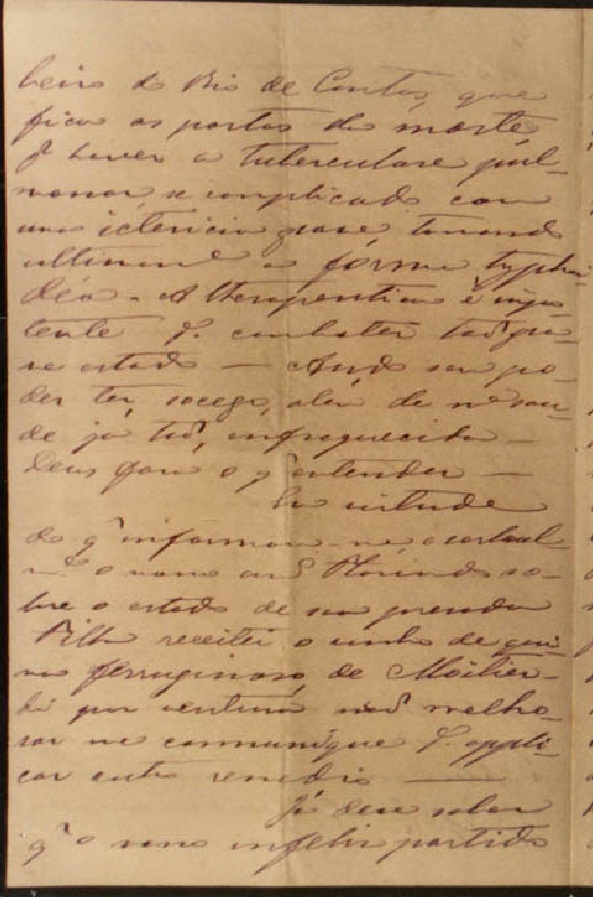 beira do Rio de Contas, que
fica as portas da morte,
p haver a tuberculose pul-
monar, se complicado com
uma ictericia grave, tomando
ultimame a forma typhoi-
dea. A therapeutica é impo-
tente p. combater tão gra-
ve estado — Ando sem po-
der ter, socego, alem de me sau-
de ja tão, enfraquecida —
Deus fara o q' entender —
Em virtude
do q' informou-me, verbal
me o nosso am Florindo so-
bre o estado de sua presada
Filha receitei o vinho de qui-
na ferruginoso, de Moitier-
Si por ventura não melho-
rar me communique p. appli-
car outro remedio —
Já deve saber
q' o nosso infeliz partido